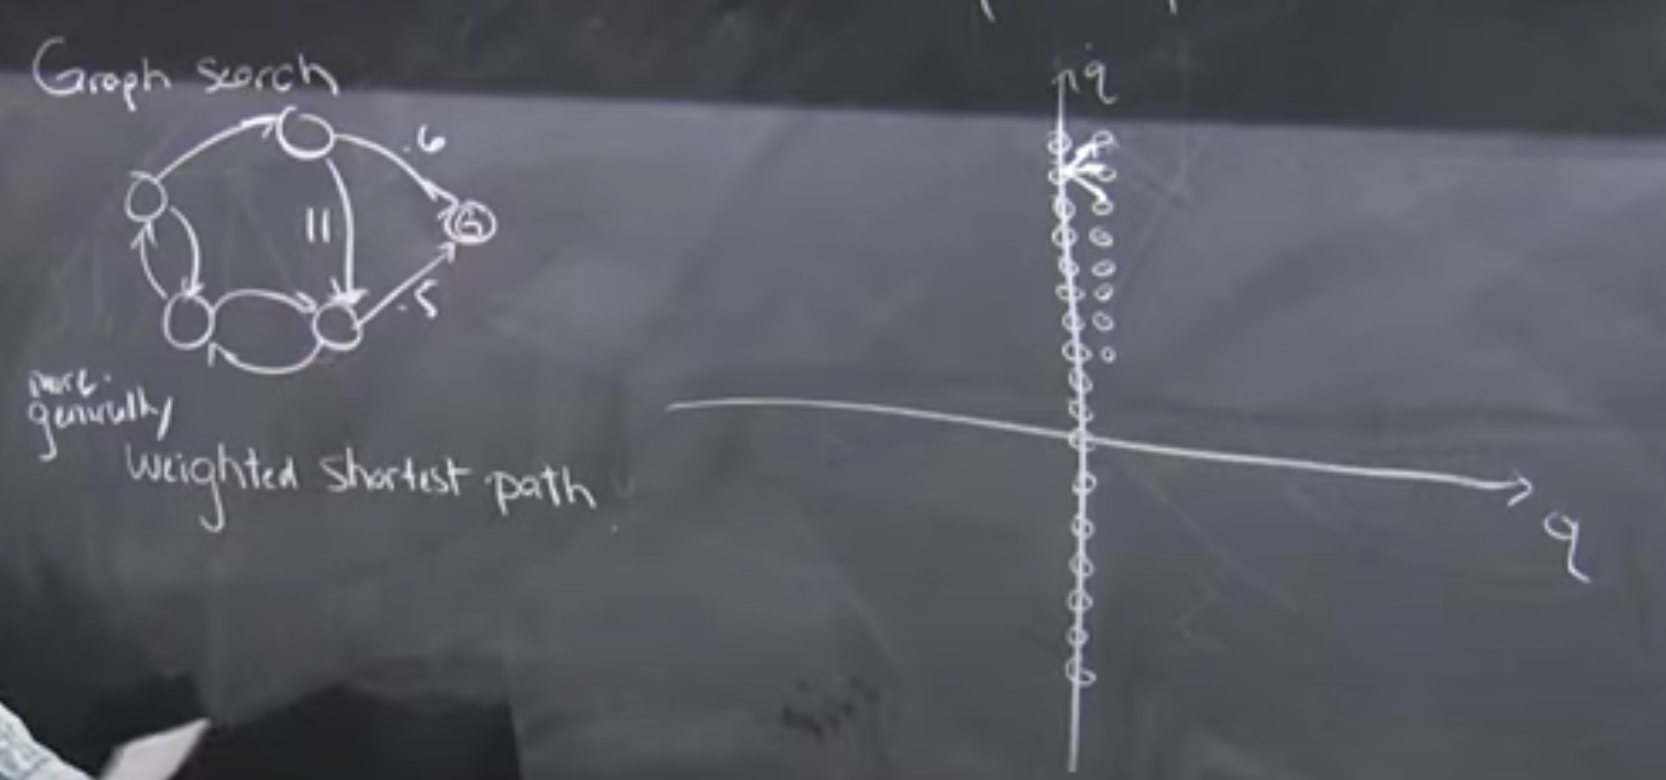 Graph search
.6
G
11
.5
more
generally
weighted shortest path
q̇
q